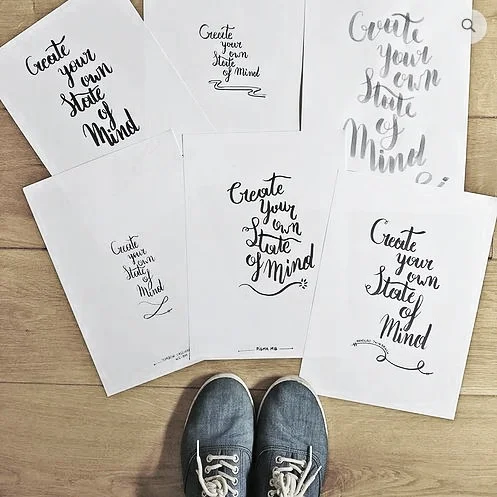 Create
your
own
State
of
Mind
Create
your
own
State
of Mind
Create
your
own
State
of
Mind
Create
your
own
State
of
Mind
Create
Your
own
State
of Mind
Create
your
own
State
of
Mind